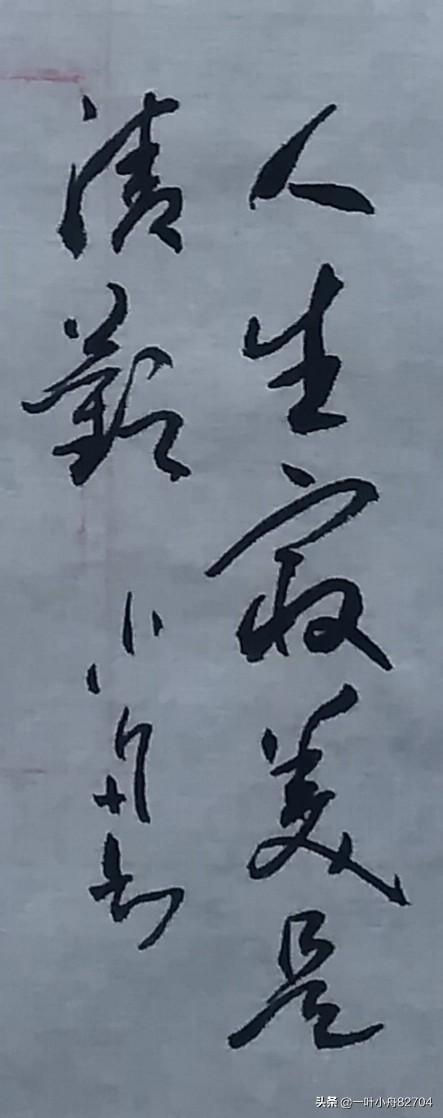 人生最美是
清歡 小舟书
头条 @一叶小舟82704